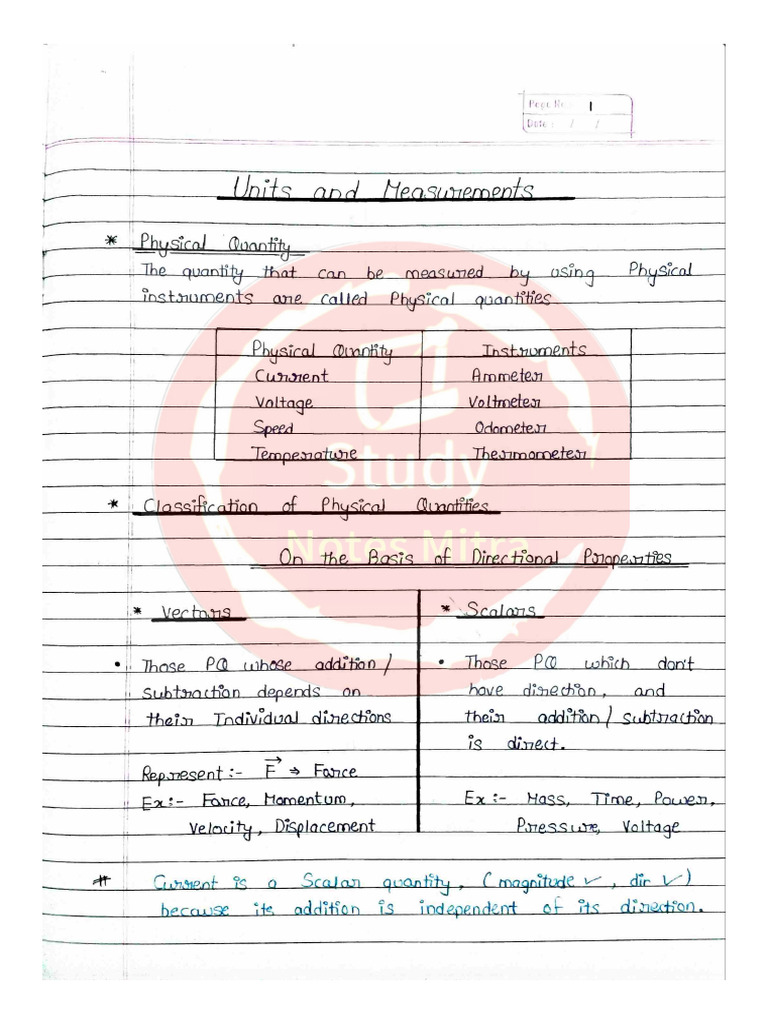 Page No. 1
Date : / /
Units and Measurements
* Physical Quantity
The quantity that can be measured by using Physical
instruments are called Physical quantities
Physical Quantity Instruments
Current Ammeter
Voltage Voltmeter
Speed Odometer
Temperature Thermometer
Study
* Classification of Physical Quantities
Notes Mitra
On the Basis of Directional Properties
* Vectors
• Those PQ whose addition/
subtraction depends on
their Individual directions
Represent:- F⃗ → Force
Ex:- Force, Momentum,
Velocity, Displacement
* Scalars
• Those PQ which don't
have direction, and
their addition/subtraction
is direct.
Ex:- Mass, Time, Power,
Pressure, Voltage
# Current is a Scalar quantity, (magnitude ✓, dir ✓)
because its addition is independent of its direction.